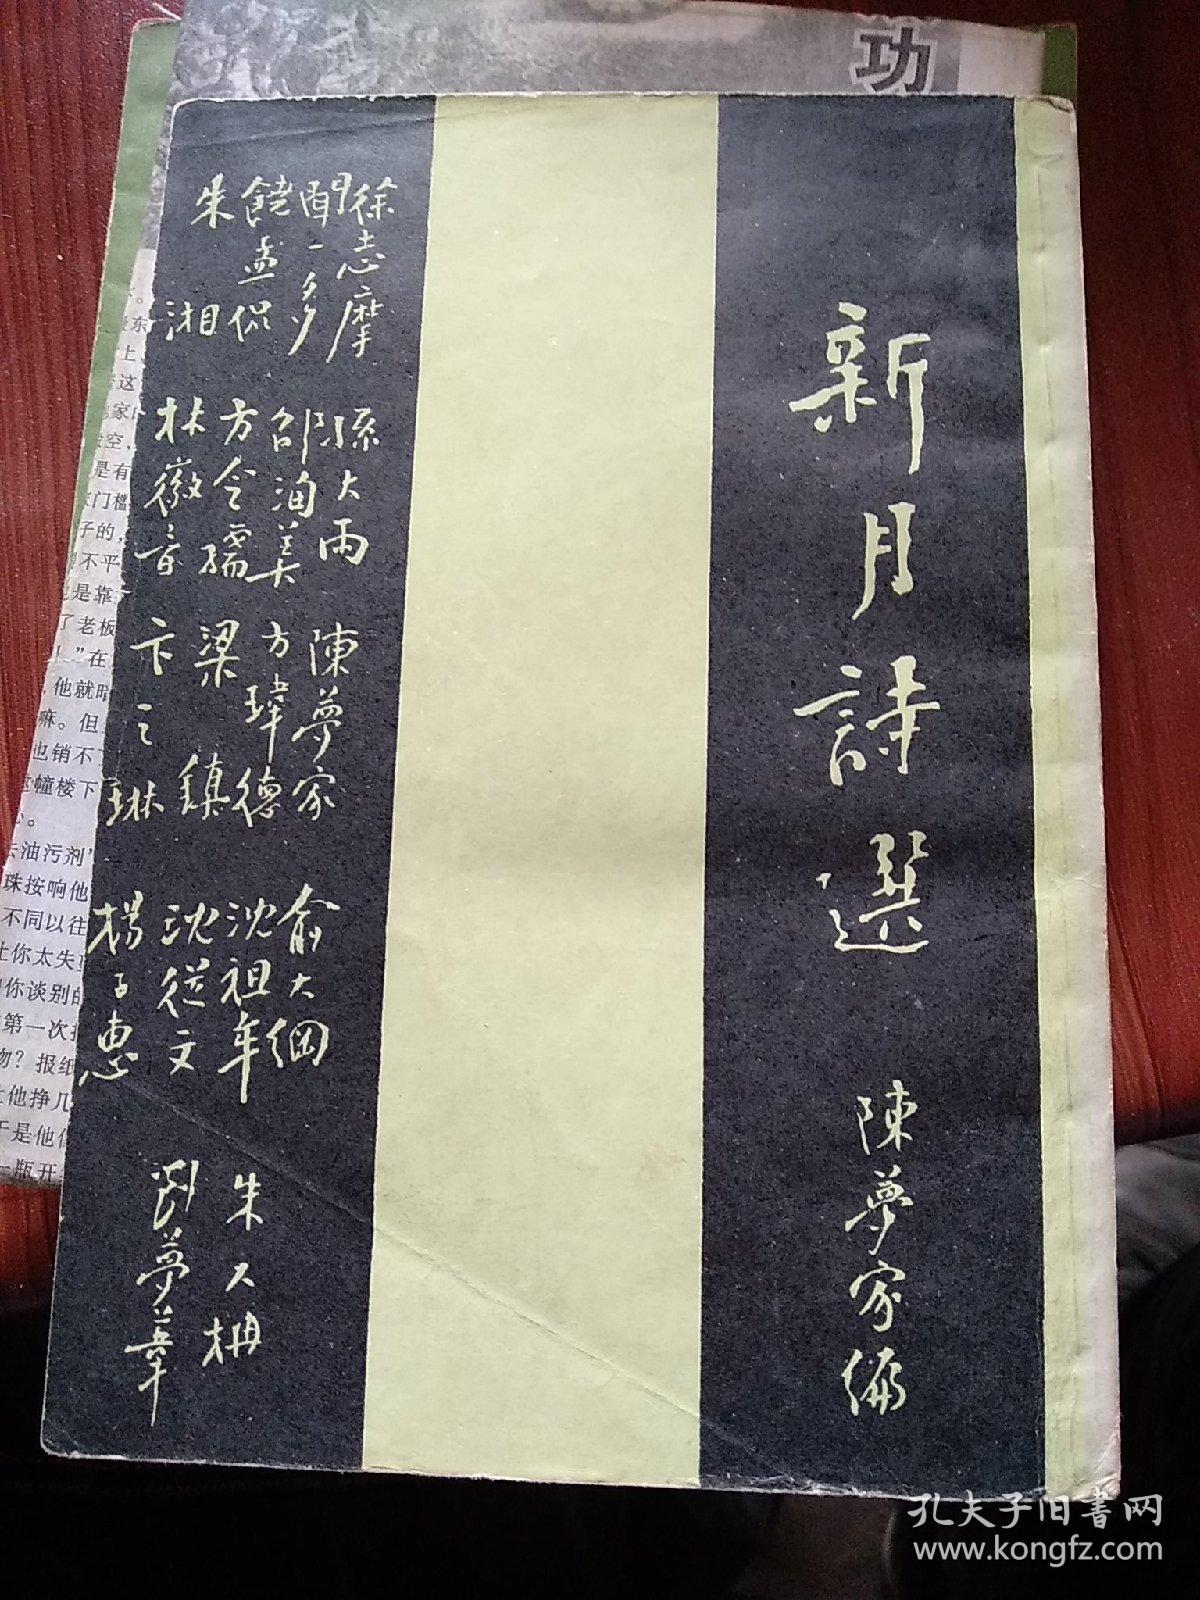 功
新月詩選 陳夢家編
徐志摩 孫大雨 陳夢家 俞大綱 朱大枏
聞一多 邵洵美 方瑋德 沈祖牟 劉夢葦
饒孟侃 方令孺 梁鎮 沈從文
朱湘 林徽音 卞之琳 楊子惠
东
上
这
家
空,
是有
门槛
子的,
不平
是靠
了老板
”在
,他就暗
嘛。但
也销不
幢楼下
。
油污剂”
珠按响他
不同以往
你太失
你谈别的
第一次
物?报纸
他挣几
于是他
瓶开
孔夫子旧书网
www.kongfz.com